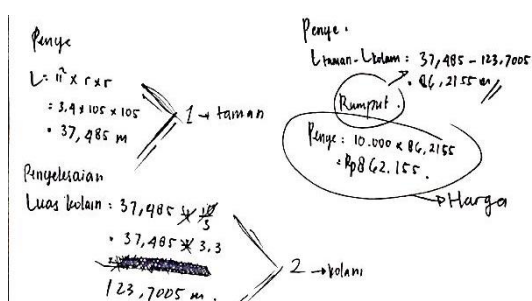 Penye
L = π x r x r
= 3.4 x 105 x 105
= 37,485 m
1 → taman
Penyelesaian
Luas kolam : 37,485 x 10/3
= 37,485 x 3.3
123,7005 m.
2 → kolam
Penye.
L taman - L kolam : 37,485 - 123,7005
= 86,2155 m
Rumput.
Penye : 10.000 x 86,2155
= Rp862.155.
→ Harga